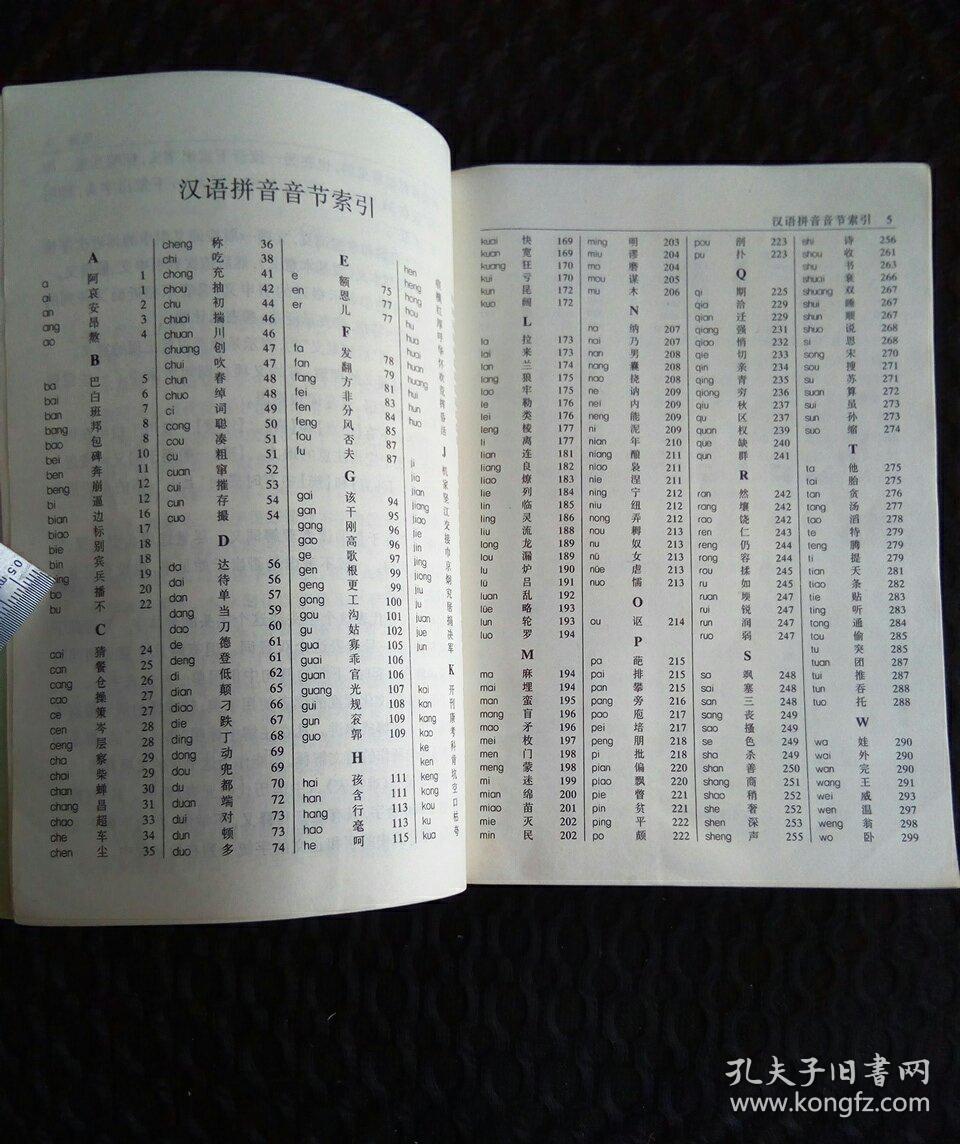 汉语拼音音节索引
A
a 阿 1
ai 哀 1
an 安 2
ang 昂 3
ao 熬 4
B
ba 巴 5
bai 白 6
ban 班 7
bang 邦 8
bao 包 8
bei 碑 10
ben 奔 11
beng 崩 12
bi 逼 12
bian 边 16
biao 标 18
bie 别 18
bin 宾 18
bing 兵 19
bo 播 20
bu 不 22
C
cai 猜 24
can 餐 25
cang 仓 26
cao 操 27
ce 策 27
cen 岑 28
ceng 层 28
cha 察 29
chai 柴 29
chan 蝉 30
chang 昌 31
chao 超 33
che 车 34
chen 尘 35
cheng 称 36
chi 吃 38
chong 充 41
chou 抽 42
chu 初 44
chuai 揣 46
chuan 川 46
chuang 创 47
chui 吹 47
chun 春 48
chuo 绰 48
ci 词 49
cong 聪 50
cou 凑 51
cu 粗 51
cuan 窜 52
cui 摧 53
cun 存 54
cuo 撮 54
D
da 达 56
dai 待 56
dan 单 57
dang 当 59
dao 刀 60
de 德 61
deng 登 61
di 低 62
dian 颠 65
diao 刁 66
die 跌 67
ding 丁 68
dong 动 69
dou 兜 69
du 都 70
duan 端 72
dui 对 73
dun 顿 73
duo 多 74
E
e 额 75
en 恩 77
er 儿 77
F
fa 发 78
fan 翻 79
fang 方 81
fei 非 83
fen 分 84
feng 风 85
fou 否 87
fu 夫 87
G
gai 该 94
gan 干 95
gang 刚 96
gao 高 96
ge 歌 97
gen 根 99
geng 更 99
gong 工 100
gou 沟 101
gu 姑 102
gua 寡 105
guai 乖 106
guan 官 106
guang 光 107
gui 规 108
gun 衮 109
guo 郭 109
H
hai 孩 111
han 含 111
hang 行 113
hao 毫 113
he 呵 115
hen
heng
hong
hou
hu
hua
huai
huan
huang
hui
hun
huo
J
ji
jia
jian
jiang
jiao
jie
jin
jing
jiu
ju
juan
jue
jun
K
kai 开
kan 刊
kang
kao 考
ke 科
ken 肯
keng 坑
kong 空
kou 口
ku 枯
kua 夸
汉语拼音音节索引 5
kuai 快 169
kuan 宽 169
kuang 狂 170
kui 亏 170
kun 昆 172
kuo 阔 172
L
la 拉 173
lai 来 173
lan 兰 174
lang 狼 175
lao 牢 175
le 勒 176
lei 类 176
leng 棱 177
li 离 177
lian 连 181
liang 良 182
liao 燎 183
lie 列 184
lin 临 185
ling 灵 186
liu 流 188
long 龙 189
lou 漏 189
lu 炉 190
lü 吕 191
luan 乱 192
lüe 略 193
lun 轮 193
luo 罗 194
M
ma 麻 194
mai 埋 194
man 蛮 195
mang 盲 196
mao 矛 196
mei 枚 197
men 门 198
meng 蒙 198
mi 迷 199
mian 绵 200
miao 苗 201
mie 灭 202
min 民 202
ming 明 203
miu 谬 204
mo 磨 204
mou 谋 205
mu 木 206
N
na 纳 207
nai 乃 207
nan 男 208
nang 囊 208
nao 挠 208
ne 讷 209
nei 内 209
neng 能 209
ni 泥 209
nian 年 210
niang 酿 211
niao 袅 211
nie 涅 211
ning 宁 212
niu 纽 212
nong 弄 212
nou 耨 213
nu 奴 213
nü 女 213
nüe 虐 213
nuo 懦 213
O
ou 讴 214
P
pa 葩 215
pai 排 215
pan 攀 215
pang 旁 216
pao 庖 217
pei 培 217
peng 朋 218
pi 批 218
pian 偏 220
piao 飘 220
pie 瞥 221
pin 贫 221
ping 平 222
po 颇 222
pou 剖 223
pu 扑 223
Q
qi 期 225
qia 洽 229
qian 迁 229
qiang 强 231
qiao 悄 232
qie 切 233
qin 亲 234
qing 青 235
qiong 穷 236
qiu 秋 237
qu 区 237
quan 权 239
que 缺 240
qun 群 241
R
ran 然 242
rang 壤 242
rao 饶 242
ren 仁 243
reng 仍 244
rong 容 244
rou 揉 245
ru 如 245
ruan 堧 247
rui 锐 247
run 润 247
ruo 弱 247
S
sa 飒 248
sai 塞 248
san 三 248
sang 丧 249
sao 搔 249
se 色 249
sha 杀 249
shan 善 250
shang 商 251
shao 稍 252
she 奢 252
shen 深 253
sheng 声 255
shi 诗 256
shou 收 261
shu 书 263
shuai 衰 266
shuang 双 267
shui 睡 267
shun 顺 267
shuo 说 268
si 思 268
song 宋 270
sou 搜 271
su 苏 271
suan 算 272
sui 虽 273
sun 孙 273
suo 缩 274
T
ta 他 275
tai 胎 275
tan 贪 276
tang 汤 277
tao 滔 278
te 特 279
teng 腾 279
ti 提 279
tian 天 281
tiao 条 282
tie 贴 283
ting 听 283
tong 通 284
tou 偷 285
tu 突 285
tuan 团 287
tui 推 287
tun 吞 288
tuo 托 288
W
wa 娃 290
wai 外 290
wan 完 290
wang 王 291
wei 威 293
wen 温 297
weng 翁 298
wo 卧 299
孔夫子旧书网
www.kongfz.com